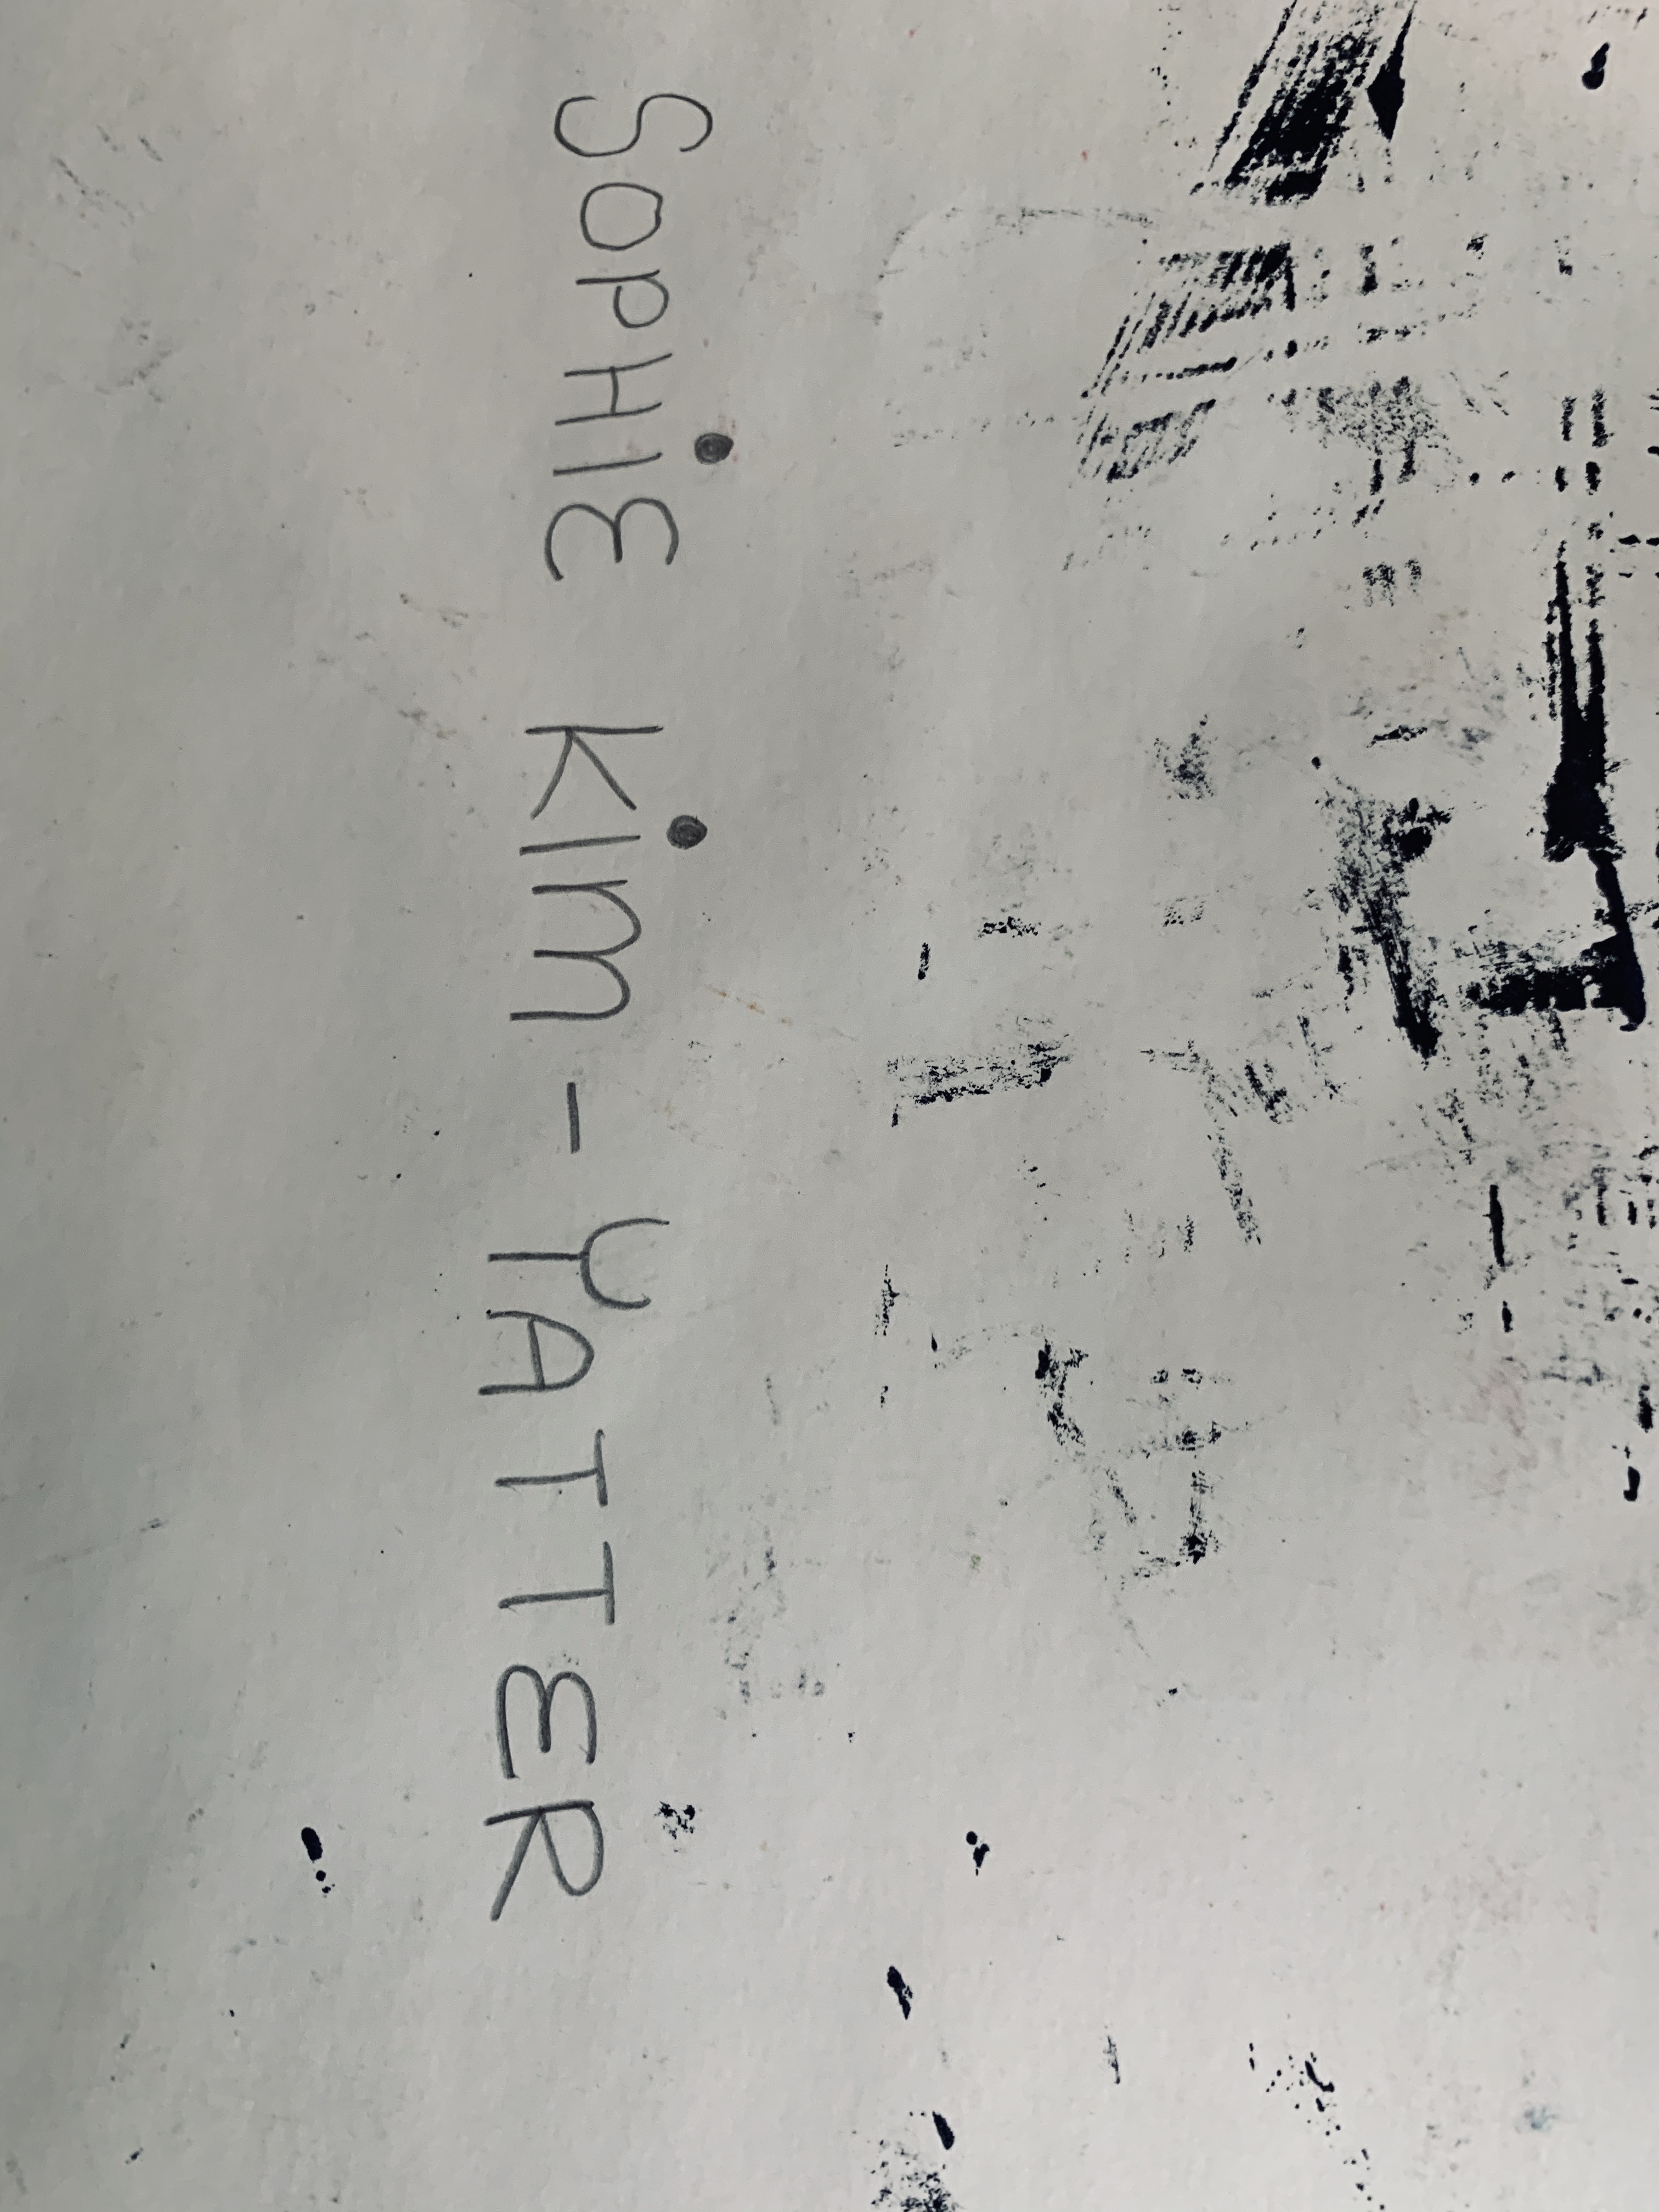 SOPHiE KiM-YATTER